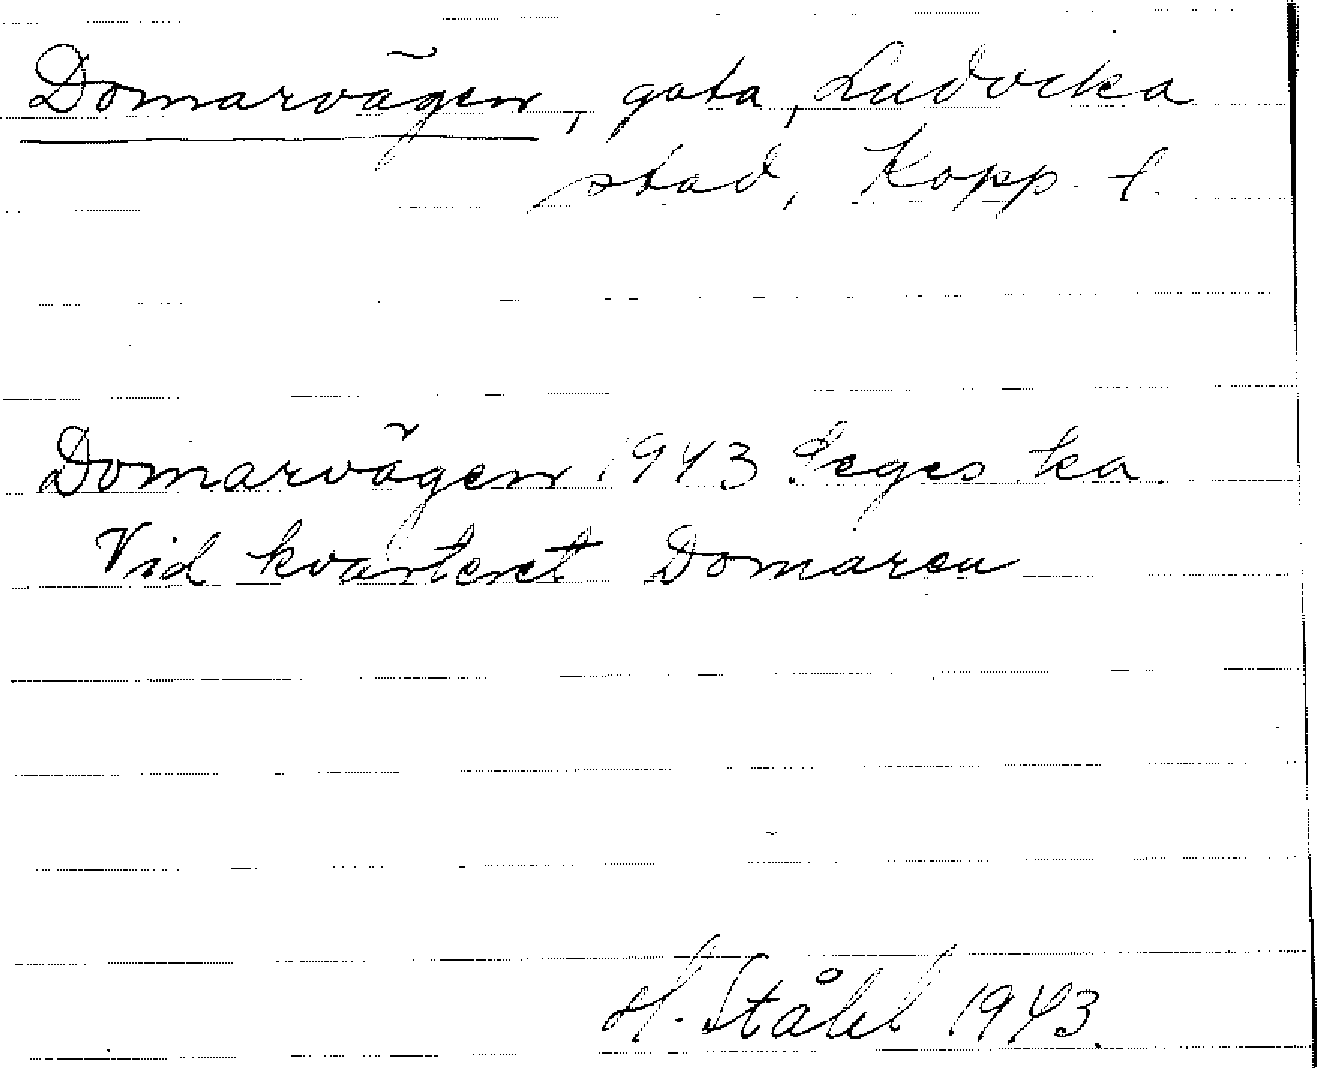 Domarvägen, gata, Ludvika
stad, Kopp. l.
Domarvägen 1943 Seges ka.
Vid kvarteret Domaren
H. Ståhl 1943.